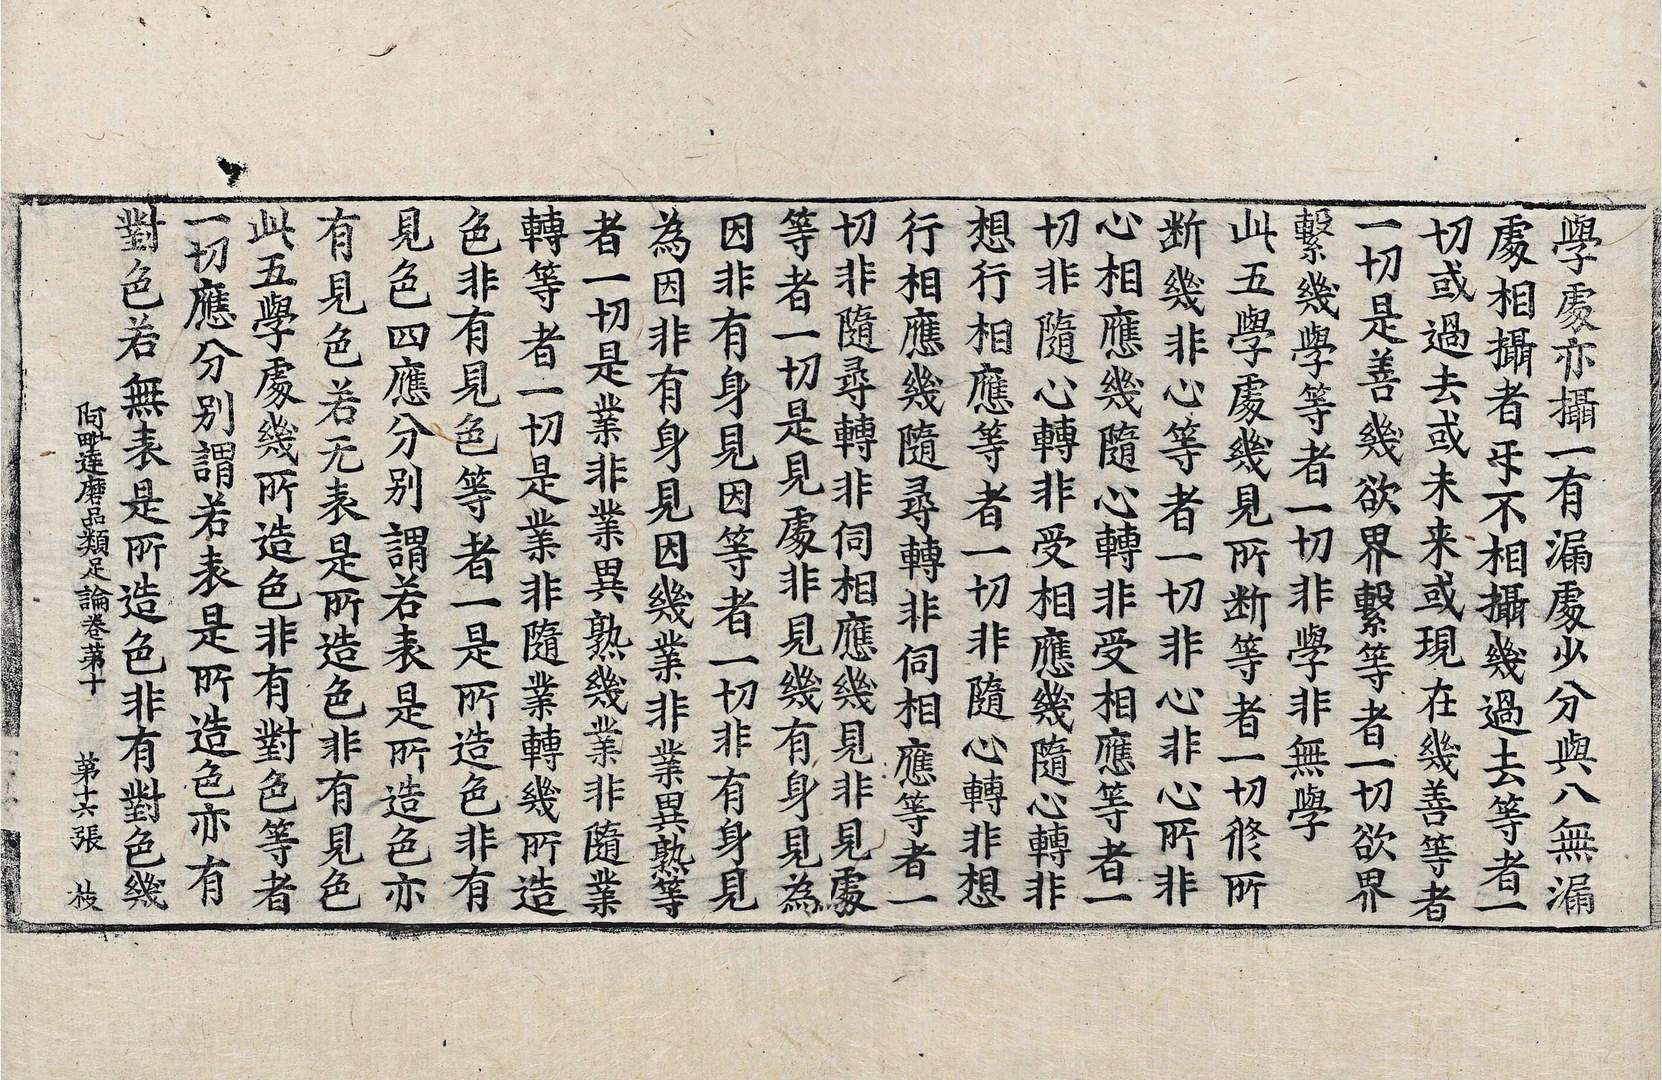 學處亦攝一有漏處少分與八無漏
處相攝者㸦不相攝幾過去等者一
切或過去或未来或現在幾善等者
一切是善幾欲界繫等者一切欲界
繫幾學等者一切非學非無學
此五學處幾見所断等者一切修所
断幾非心等者一切非心非心所非
心相應幾隨心轉非受相應等者一
切非隨心轉非受相應幾隨心轉非
想行相應等者一切非隨心轉非想
行相應幾隨尋轉非伺相應等者一
切非隨尋轉非伺相應幾見非見處
等者一切是見處非見幾有身見為
因非有身見因等者一切非有身見
為因非有身見因幾業非業異熟等
者一切是業非業異熟幾業非隨業
轉等者一切是業非隨業轉幾所造
色非有見色等者一是所造色非有
見色四應分别謂若表是所造色亦
有見色若无表是所造色非有見色
此五學處幾所造色非有對色等者
一切應分别謂若表是所造色亦有
對色若無表是所造色非有對色幾
阿毗達磨品類足論卷苐十 苐十六張 枝